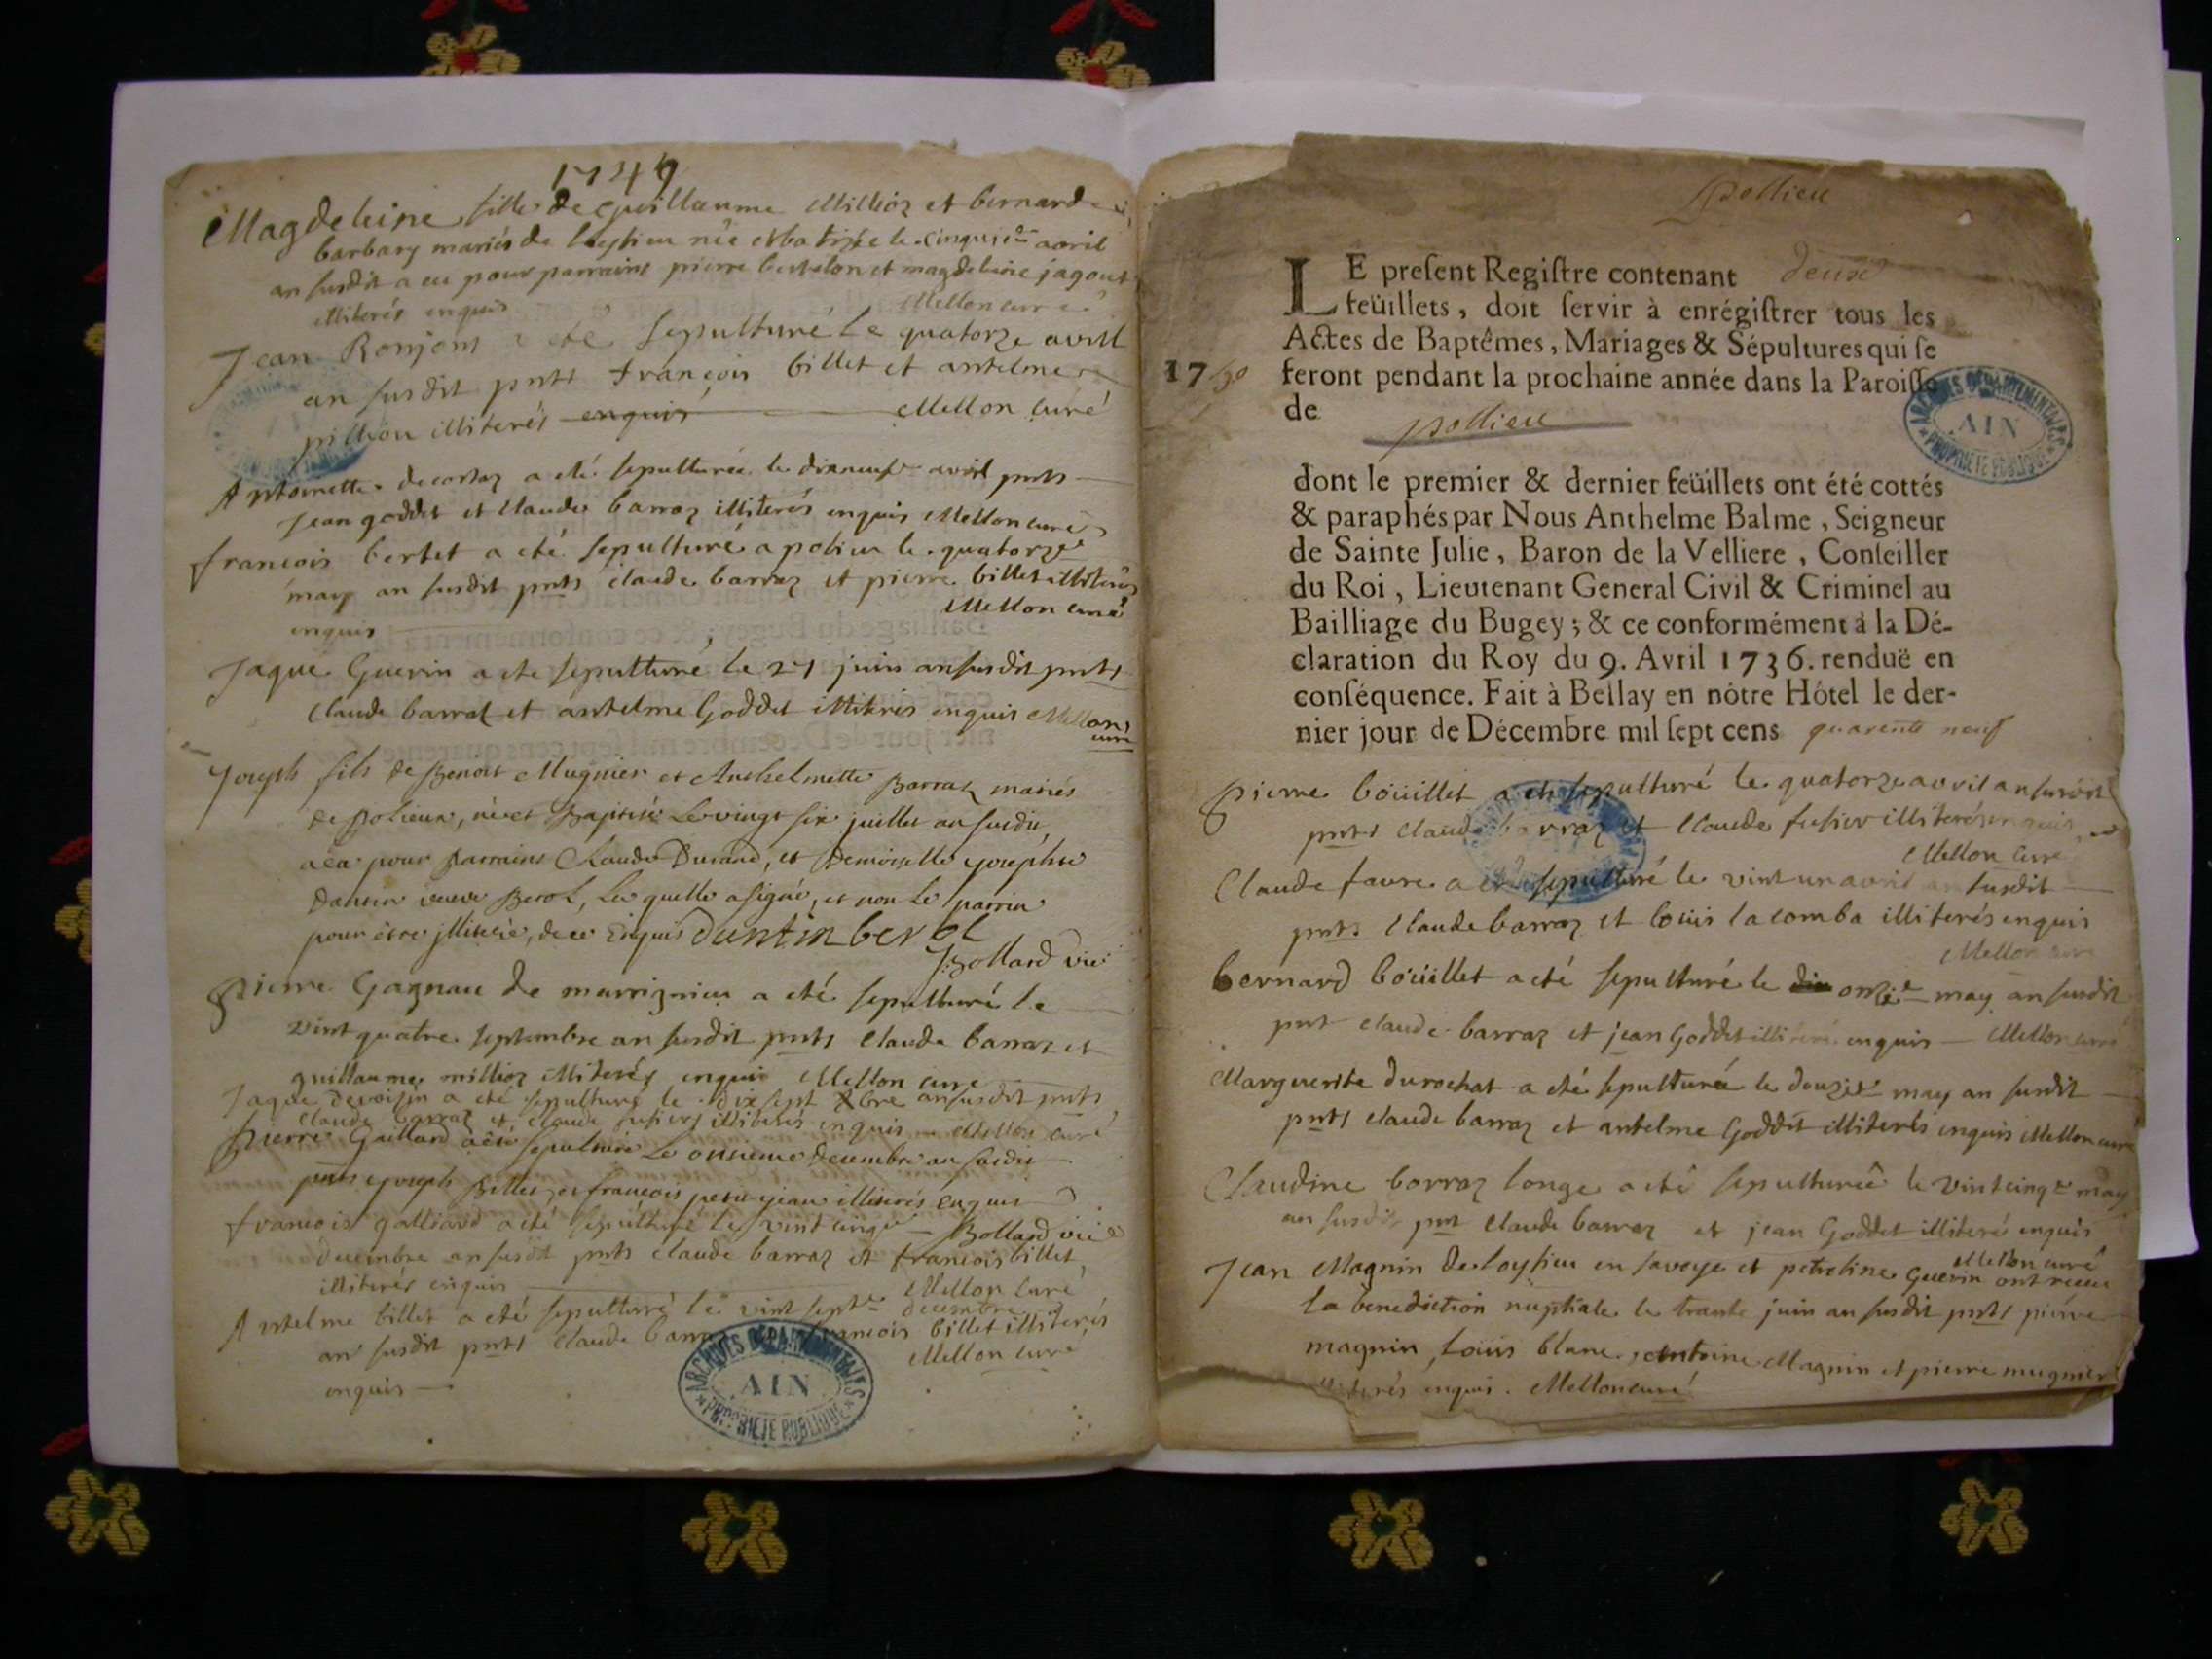 1749
Magdeleine fille de guillaume Millioz et bernarde
barbary mariés de loysieu née et batizée le cinquie avril
an susdit a eu pour parrains pierre bertelon et magdeleine jagout
illiterés enquis Mellon curé
Jean Ronjom a eté sepulturé le quatorze avril
an susdit pnts françois billet et antelme
pillion illiterés enquis Mellon curé
Antoinette decortaz a eté sepulturée le dixneufe avril pnts
Jean goddet et claude barraz illiterés enquis Mellon curé
francois bertet a eté sepulturé a polieu le quatorze
may an susdit pnts claude barraz et pierre billet illiterés
enquis Mellon curé
Jaque Guerin a ete sepulturé le 27 juin an susdit pnts
claude barraz et antelme Goddet illiterés enquis Mellon
curé
Joseph fils de Benoit Mugnier et Anthelmette Barraz mariés
de Polieux, né et Baptisé le vingt six juillet an susdit,
a eu pour parrains Claude Durand, et Demoiselle josephte
Dantin veuve Berol, la quelle a signé, et non le parrin
pour être illiteré, de ce Enquis Dantin berol
Bollard vic
Pierre Gagnau de murrignieu a eté sepulturé le
vint quatre septembre an susdit pnts claude barraz et
guillaume millioz illiterés enquis Mellon curé
Jaque devoisin a eté sepulturé le dix sept Xbre an susdit pnts
claude barraz et claude fusier illiterés enquis Mellon curé
Pierre Gaillard a été sepulturé Le onzieme Decembre an susdit
pnts joseph Billet, et francois petit jean illiterés enquis
Bollard vic
francois galliard a eté sepulturé le vint cinqe
decembre an susdit pnts claude barraz et francois billet
illiterés enquis Mellon curé
Antelme billet a eté sepulturé le vint septe decembre
an susdit pnts claude francois billet illiterés
enquis Mellon curé
ARCHIVES DÉPARTEMENTALES
AIN
PROPRIÉTÉ PUBLIQUE
pollieu
LE present Registre contenant deux
feüillets, doit servir à enrégistrer tous les
Actes de Baptêmes, Mariages & Sépultures qui se
1750 feront pendant la prochaine année dans la Paroisse
de pollieu
ARCHIVES DÉPARTEMENTALES
AIN
PROPRIÉTÉ PUBLIQUE
dont le premier & dernier feüillets ont été cottés
& paraphés par Nous Anthelme Balme, Seigneur
de Sainte Julie, Baron de la Velliere, Conseiller
du Roi, Lieutenant General Civil & Criminel au
Bailliage du Bugey; & ce conformément à la Dé-
claration du Roy du 9. Avril 1736. renduë en
conséquence. Fait à Bellay en nôtre Hôtel le der-
nier jour de Décembre mil sept cens quarente neuf
Pierre boüillet a eté sepulturé le quatorze avril an susdit
pnts claude barraz et claude fusier illiterés enquis
Mellon curé
Claude favre a eté sepulturé le vint un avril an susdit
pnts claude barraz et loüis lacomba illiterés enquis
Mellon curé
bernard boüillet a eté sepulturé le onzie may an susdit
pnt claude barraz et jean Goddet illiteré enquis Mellon curé
Marguerite durochat a eté sepulturée le douze may an susdit
pnts claude barraz et antelme Goddet illiterés enquis Mellon curé
Claudine borraz longe a eté sepulturée le vint cinqe may
an susdit pnt claude barraz et jean Goddet illiteré enquis
Mellon curé
Jean Magnin de loysieu en savoye et petroline Guerin ont receu
la benediction nuptiale le trante juin an susdit pnts pierre
magnin, loüis blanc, antoine Magnin et pierre mugnier
illiterés enquis. Mellon curé